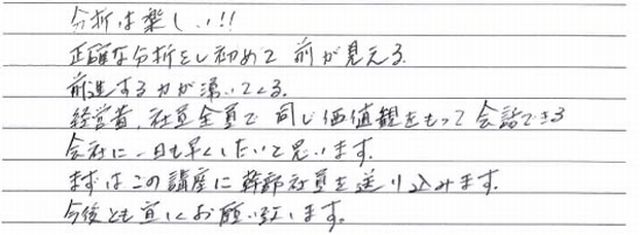 分析は楽しい!!
正確な分析をし初めて前が見える.
前進する力が湧いてくる.
経営者、社員全員で同じ価値観をもって会話できる
会社に一日も早くしたいと思います.
まずはこの講座に幹部社員を送り込みます.
今後とも宜しくお願い致します.